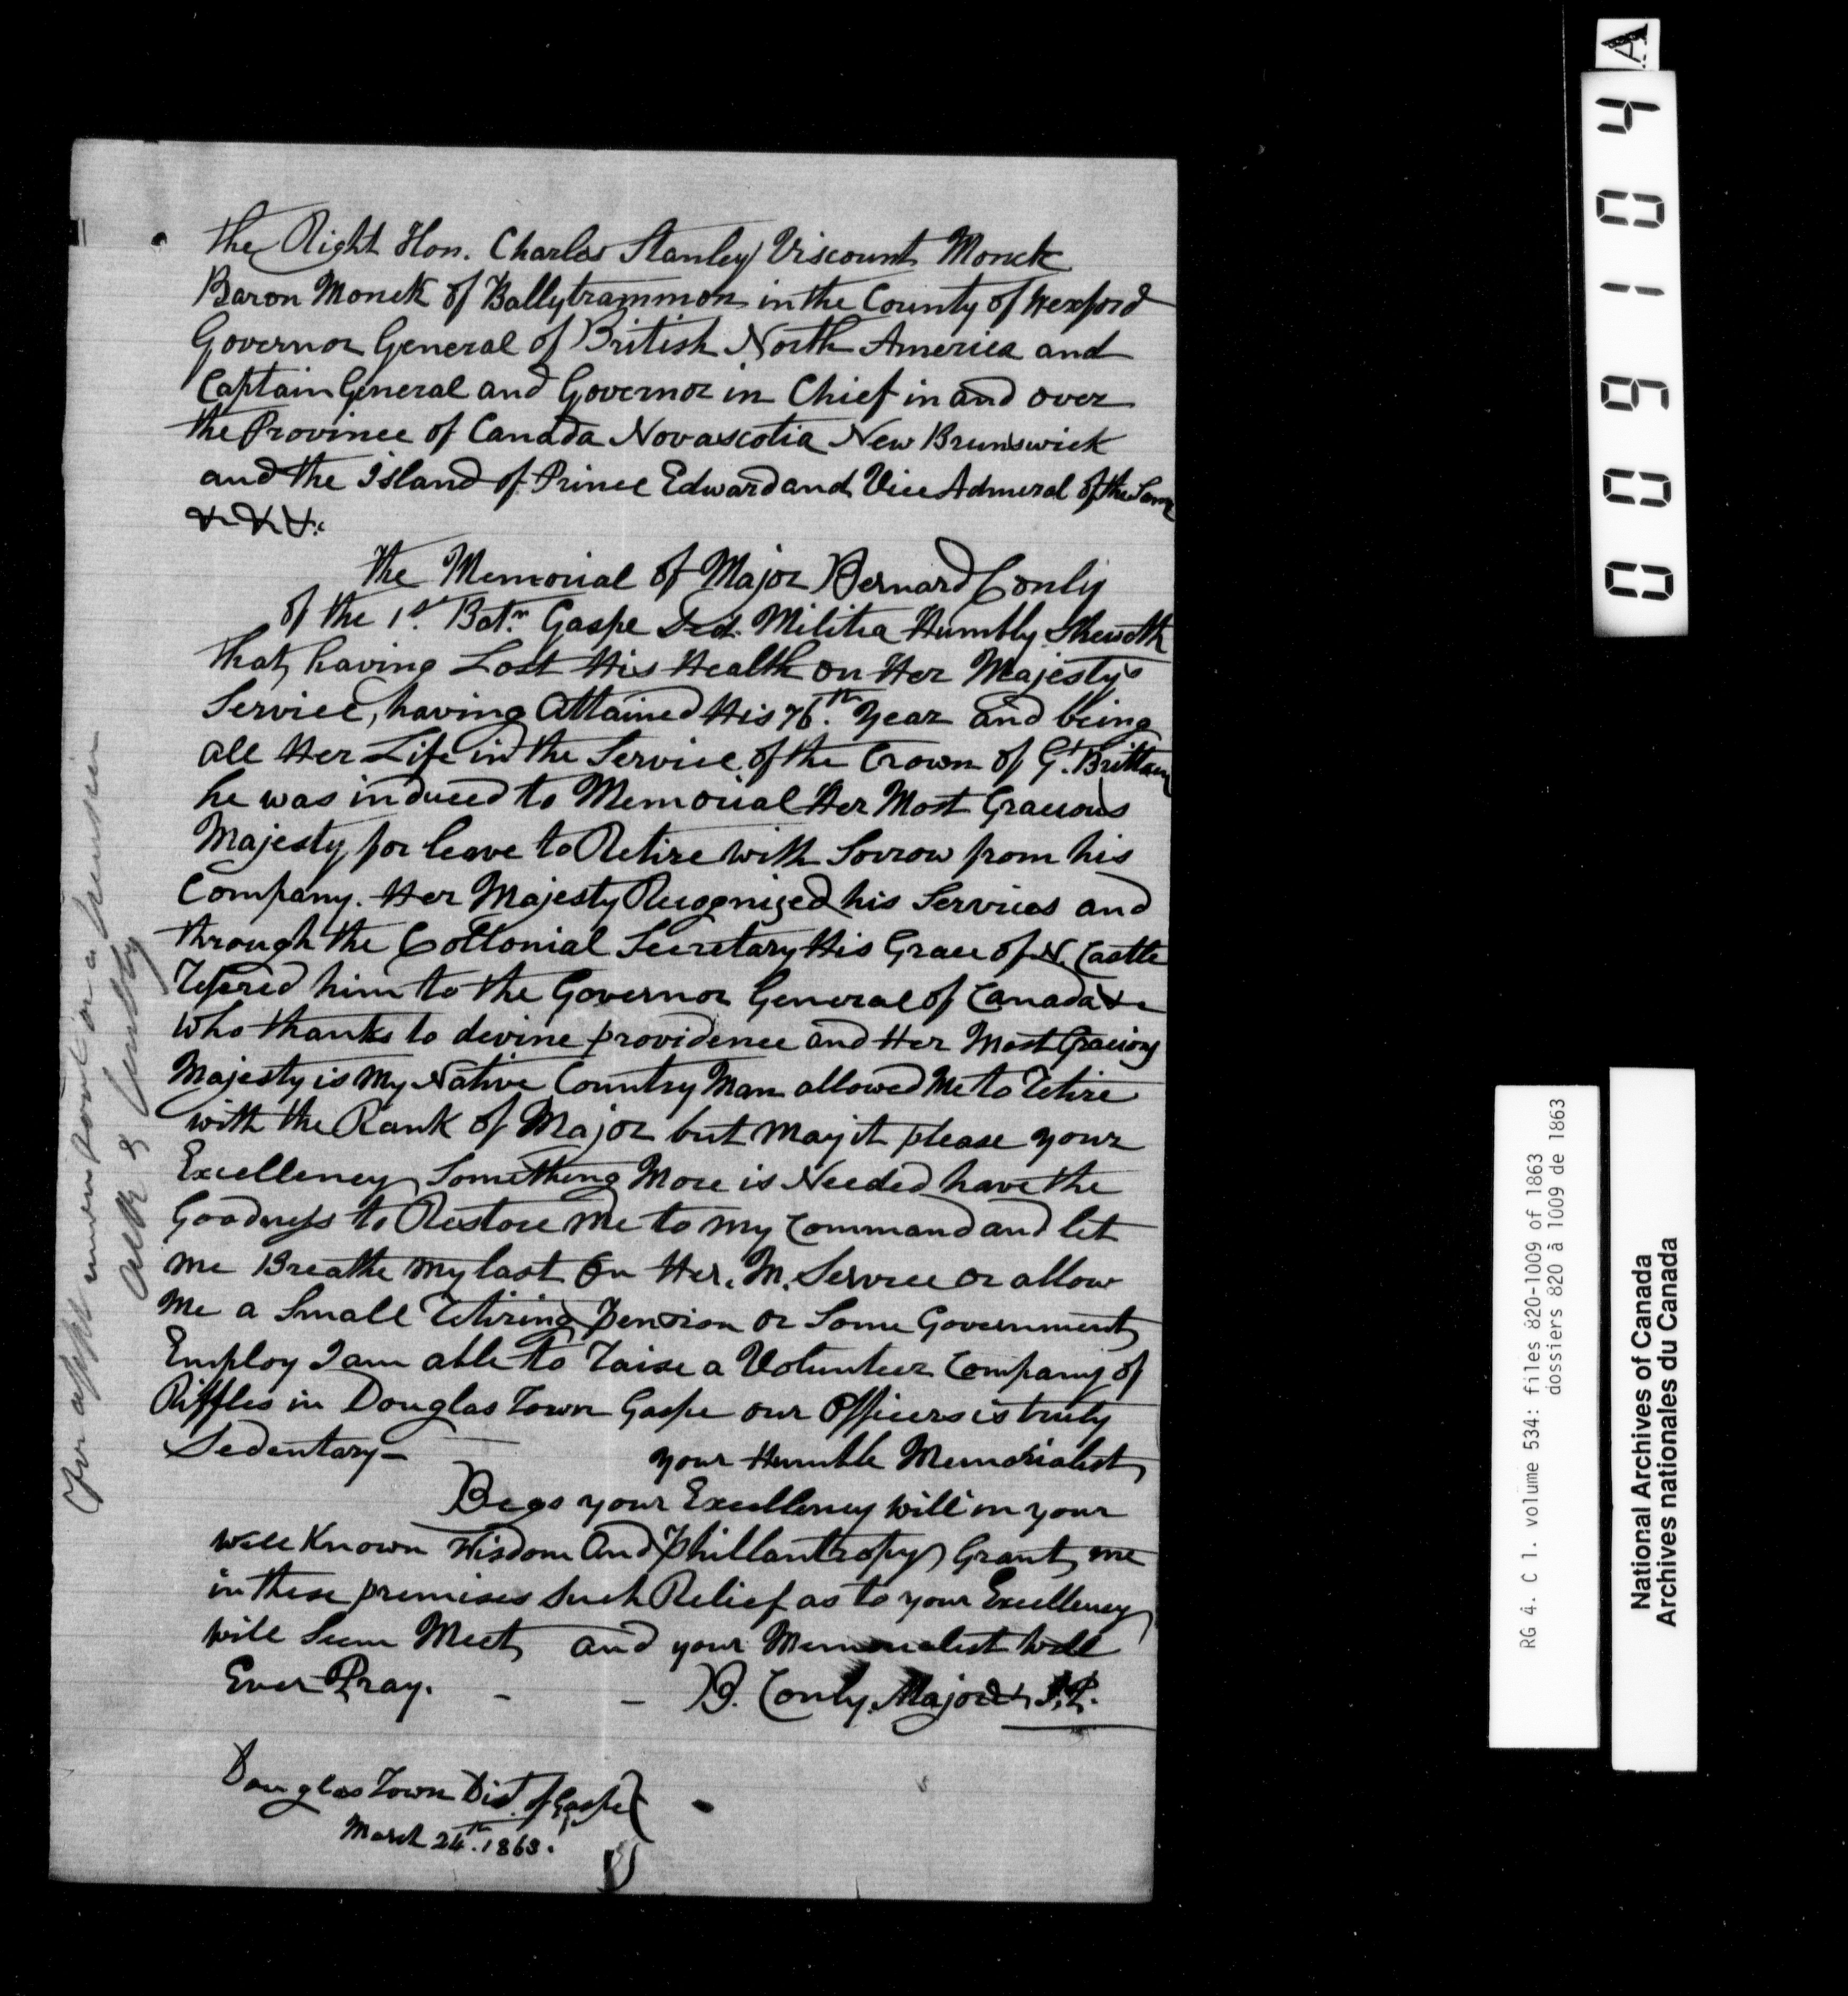 The Right Hon. Charles Stanley Viscount Monck
Baron Monck of Ballytrammon in the County of Wexford
Governor General of British North America and
Captain General and Governor in Chief in and over
the Province of Canada Novascotia New Brunswick
and the Island of Prince Edward and Vice Admeral of the Same
& & &c
The Memorial of Major Bernard Conly
of the 1st. Batn. Gaspe Sed. Militia Humbly Sheweth
that, having Lost His Health on Her Majestys
Service, having Attained His 76.th Year and being
all Her Life in the Service of the Crown of Gt. Brittain
he was induced to Memorial Her Most Gracious
Majesty for leave to Retire with Sorrow from his
Company. Her Majesty Recognized his Services and
through the Collonial Secretary His Grace of N. Castle
refered him to the Governor General of Canada &c
Who thanks to devine providence and Her Most Gracious
Majesty is My Native Country Man allowed Me to retire
with the Rank of Major but may it please your
Excellency Something More is Needed have the
Goodness to Restore me to my Command and let
me Breathe my last On Her. M. Service or allow
me a Small retiring pension or Some Government
Employ I am able to raise a Volunteer Company of
Riffles in Douglas Town Gaspe our Officers is truly
Sedentary -
your Humble Memorialist
Begs your Excellency will in your
well Known Wisdom And phillantropy Grant me
in these premises Such Relief as to your Excellency
will Seem Meet and your Memorialist Will
Ever Pray. - - B. Conly. Major & J.P.
Douglas Town Dist. of Gaspe
March 24th. 1863.
For appt or a pension
Ack &
A
009104
RG 4. C 1. volume 534: files 820-1009 of 1863
dossiers 820 à 1009 de 1863
National Archives of Canada
Archives nationales du Canada